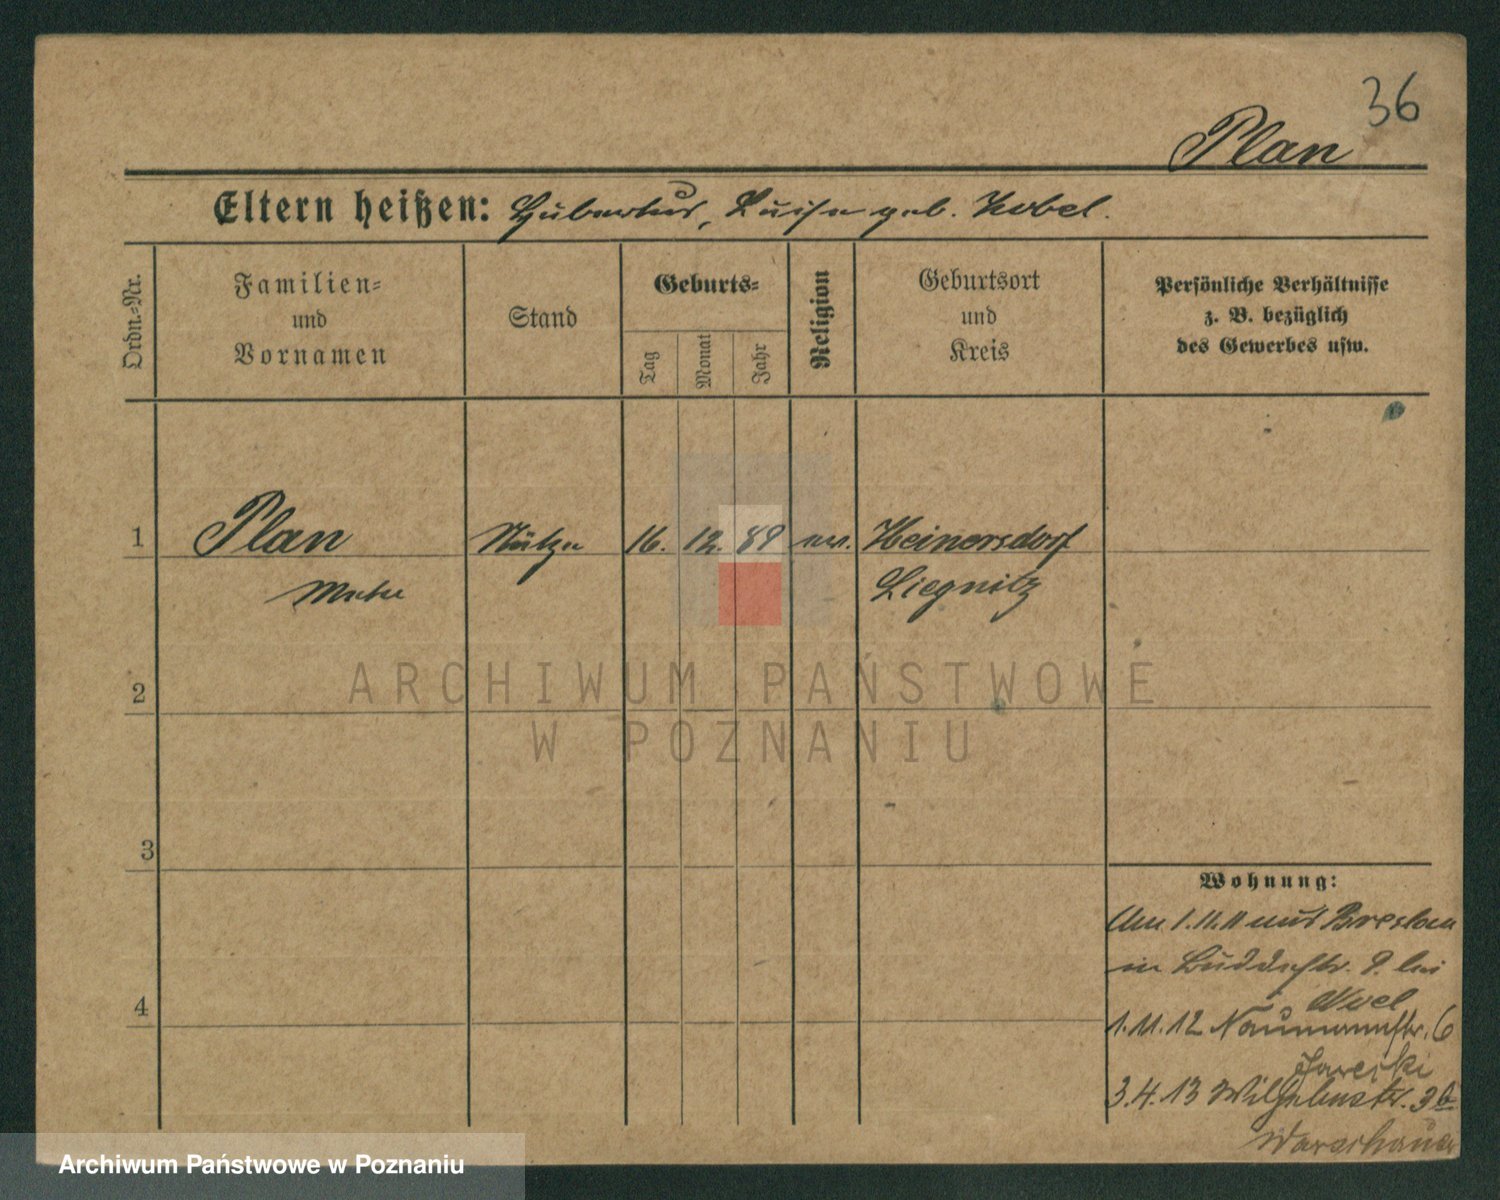 36
Plan
Eltern heißen: Hubertus, Luise geb. Kobel.
Ordn.-Nr.
Familien-
und
Vornamen
Stand
Geburts-
Tag
Monat
Jahr
Religion
Geburtsort
und
Kreis
Persönliche Verhältnisse
z. B. bezüglich
des Gewerbes usw.
1 Plan Stütze 16. 12. 89 ev. Heinersdorf
Liegnitz
ARCHIWUM PAŃSTWOWE
2
W POZNANIU
3
Wohnung:
Am 1.11.11 aus Breslau
in Buddestr. 9. bei
4
1.11.12 Naumannstr. 6
Jarecki
3.4.13 Wilhelmstr. 3b
Warschauer
Archiwum Państwowe w Poznaniu